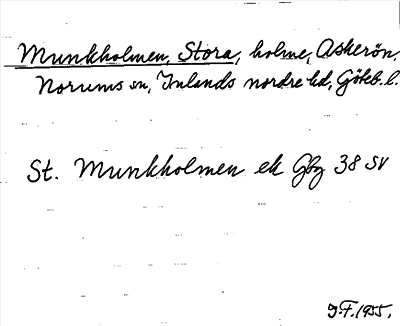 Munkholmen, Stora, holme, Askerön.
Norums sn, Inlands nordre hd, Göteb. l.
St. Munkholmen ek Gbg 38 SV
J.F. 1955.